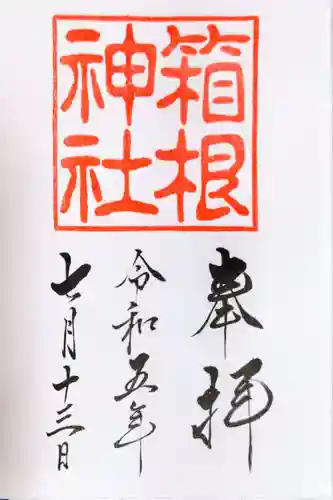 箱根
神社
奉拝
令和五年
七月十三日